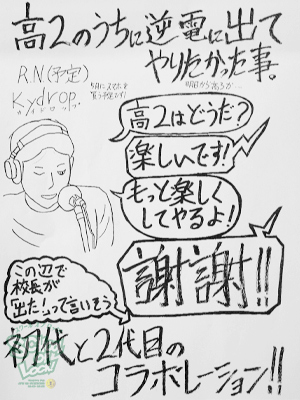 高2のうちに逆電に出て
やりたかった事。
RN(予定)
Kydrop.
高2はどうだ?
楽しいです!
もっと楽しく
してやるよ!
謝謝!!
この辺で
校長が
「出た!」って言いそう
初代と2代目の
コラボレーション!!